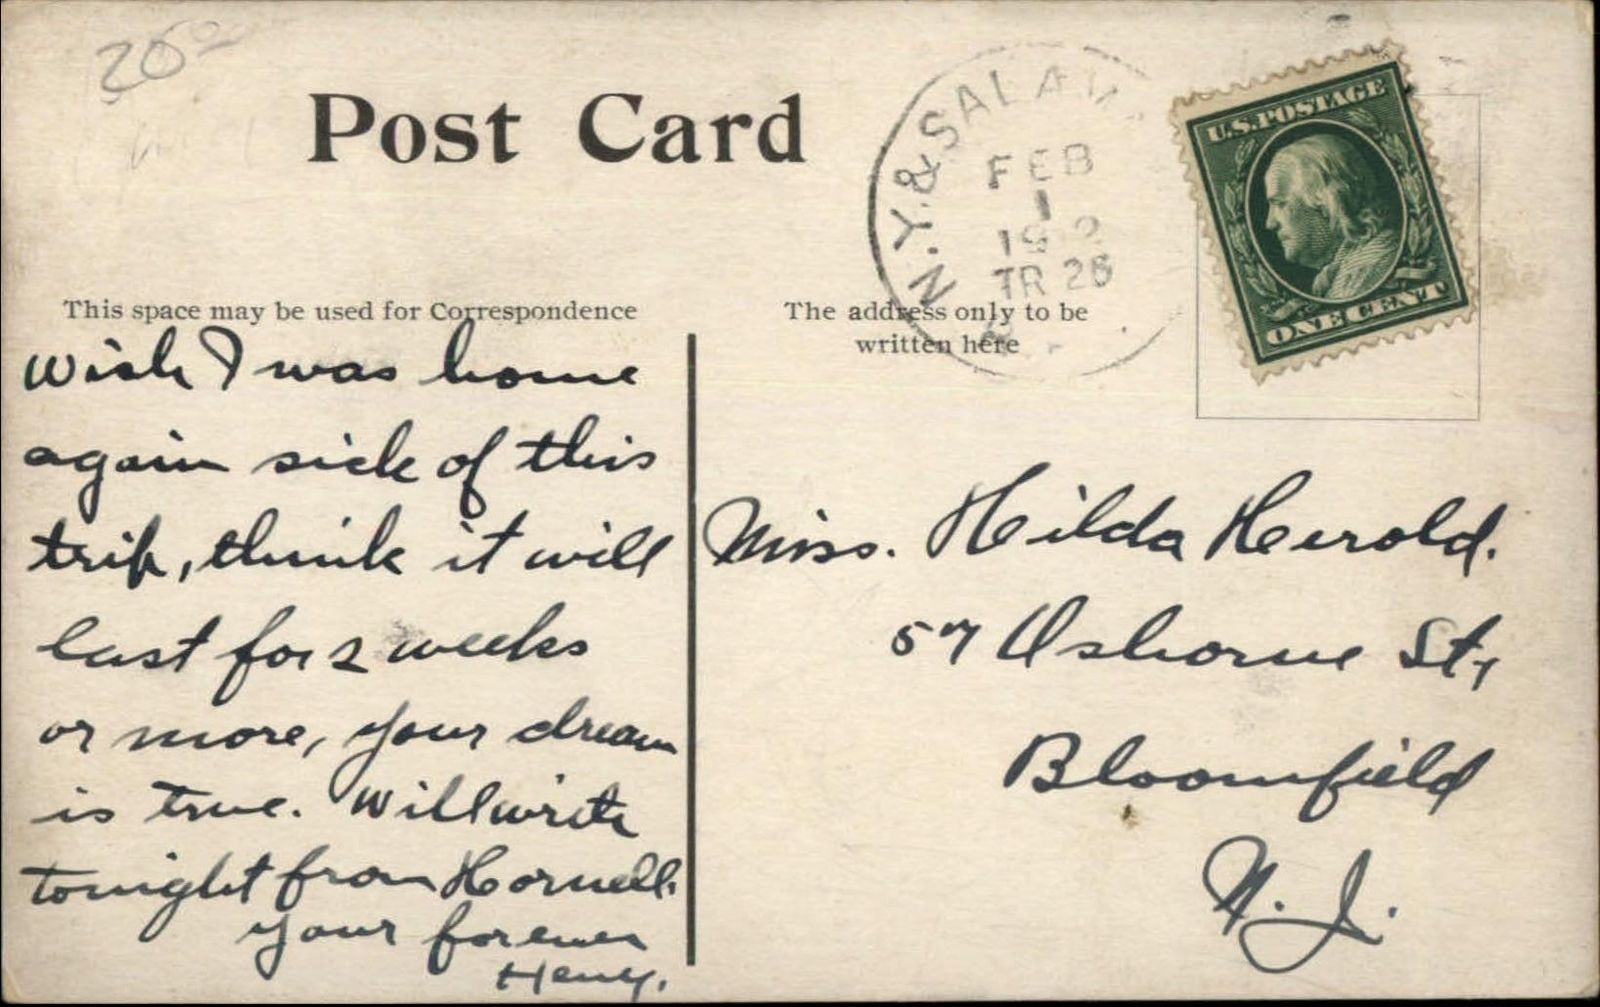 Post Card
N.Y. & SALAM
FEB
1
TR 26
U.S. POSTAGE
ONE CENT
This space may be used for Correspondence
The address only to be
written here
Wish I was home
again sick of this
trip, think it will
last for 2 weeks
or more, your dream
is true. Will write
tonight from Hornell.
your forever
Henry.
Miss. Hilda Herold.
57 Osborne St,
Bloomfield
N. J.